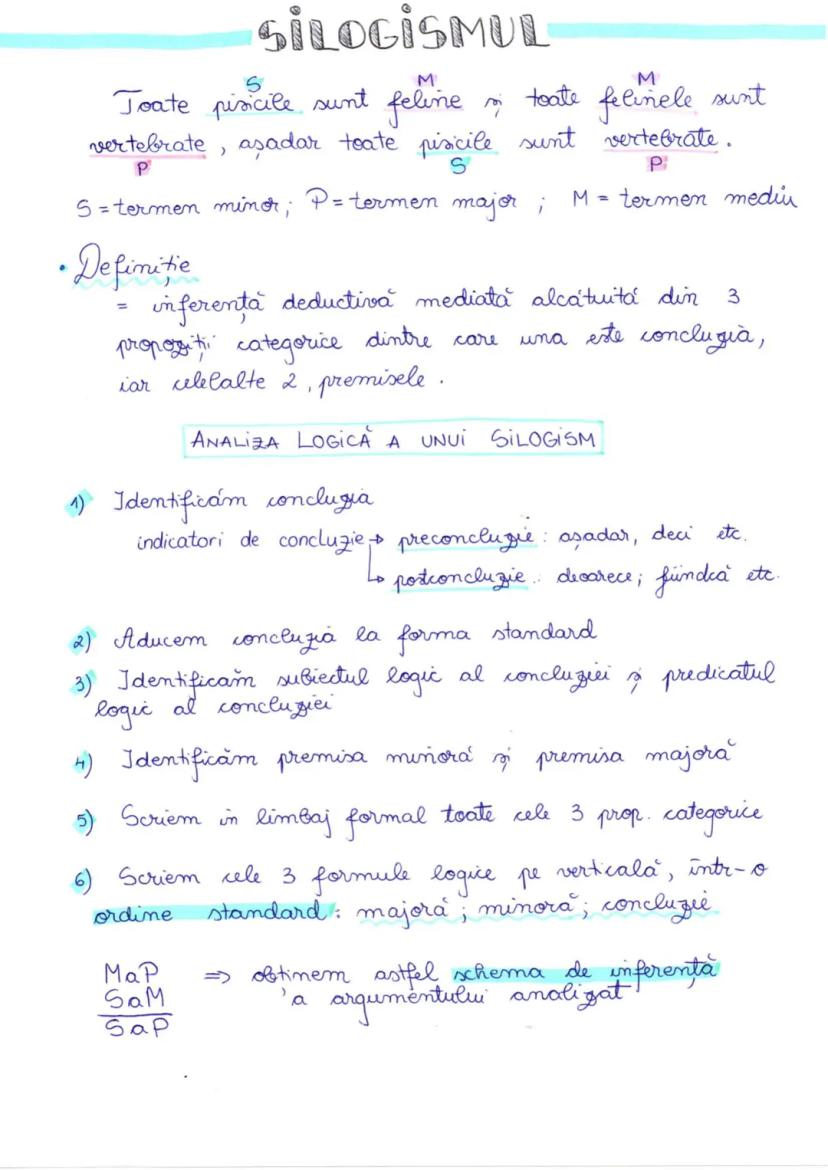 SILOGISMUL
S M M
Toate pisicile sunt feline și toate felinele sunt
vertebrate, așadar toate pisicile sunt vertebrate.
P S P
S = termen minor; P = termen major ; M = termen mediu
• Definiție
= inferență deductivă mediată alcătuită din 3
propoziții categorice dintre care una este concluzia,
iar celelalte 2, premisele.
ANALIZA LOGICĂ A UNUI SILOGISM
1) Identificăm concluzia
indicatori de concluzie → preconcluzie: așadar, deci etc.
↳ postconcluzie: deoarece; fiindcă etc.
2) Aducem concluzia la forma standard
3) Identificăm subiectul logic al concluziei și predicatul
logic al concluziei
4) Identificăm premisa minoră și premisa majoră
5) Scriem în limbaj formal toate cele 3 prop. categorice
6) Scriem cele 3 formule logice pe verticală, într-o
ordine standard: majoră; minoră; concluzie
MaP ⇒ obținem astfel schema de inferență
SaM a argumentului analizat
SaP